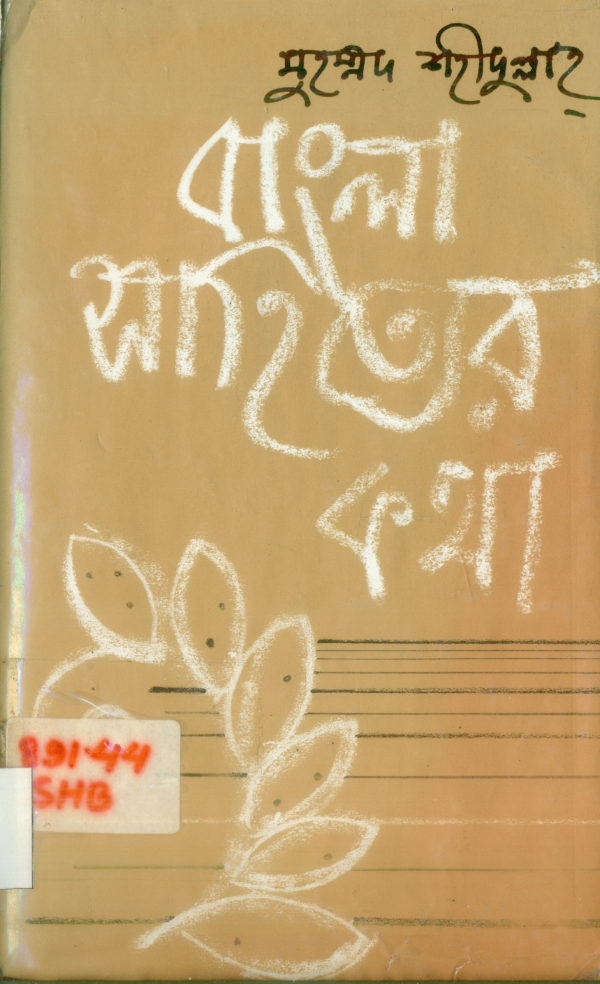 মুহম্মদ শহীদুল্লাহ্
বাংলা
সাহিত্যের
কথা
891.44
SHB